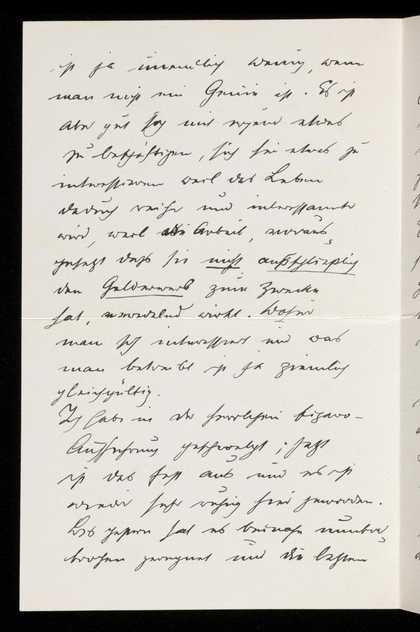 ist ja unendlich wenig, wenn
man nicht ein Genie ist. Es ist
aber gut sich mit irgend etwas
zu beschäftigen, sich für etwas zu
interessieren weil das Leben
dadurch reicher und interessanter
wird, weil die Arbeit, voraus-
gesetzt dass sie nicht ausschliesslich
den Gelderwerb zum Zwecke
hat, veredelnd wirkt. Wofür
man sich interessiert und was
man betreibt ist ja ziemlich
gleichgültig.
Ich habe in der herrlichen Figaro-
Aufführung geschwelgt; jetzt
ist das Fest aus und es ist
wieder sehr ruhig hier geworden.
Bis gestern hat es beinahe ununter-
brochen geregnet und die letzten